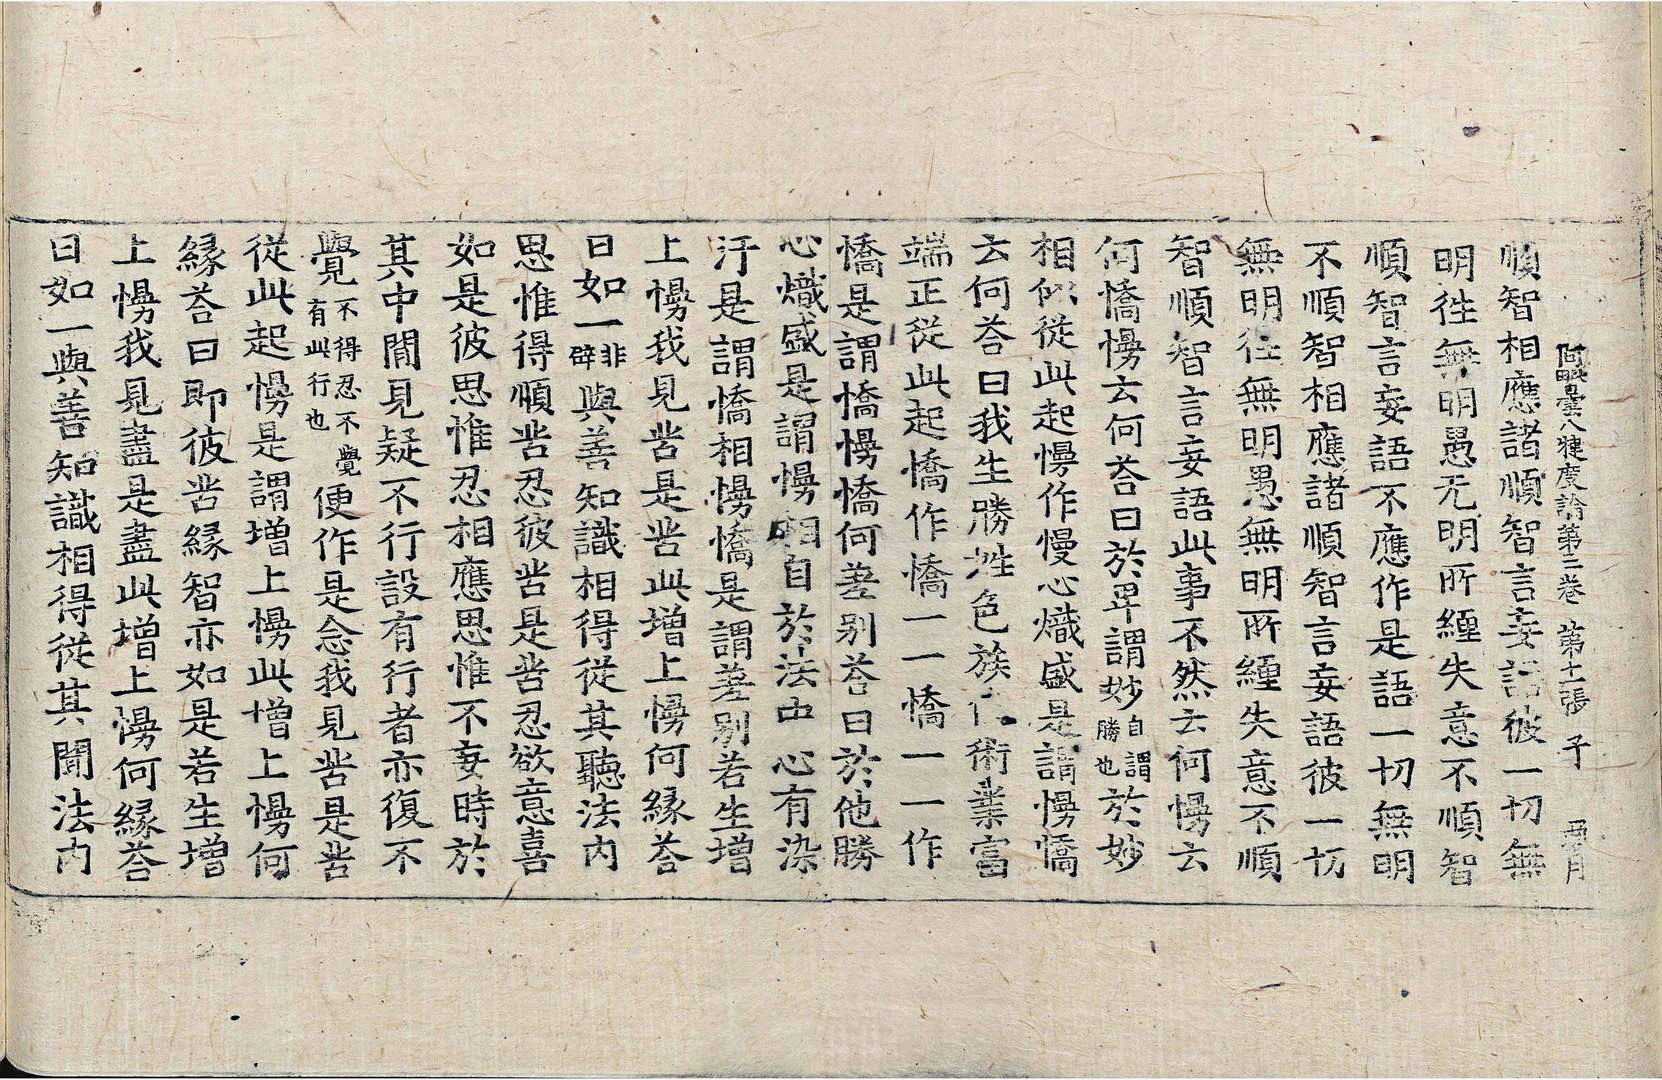 阿毗曇八犍度論第三卷 第十一張 子
順智相應諸順智言妄語彼一切無
明徃無明愚无明所纏失意不順智
順智言妄語不應作是語一切無明
不順智相應諸順智言妄語彼一切
無明徃無明愚無明所纏失意不順
智順智言妄語此事不然云何慢云
何憍慢云何荅曰於卑謂妙自謂勝也於妙
相似從此起慢作慢心熾盛是謂慢憍
云何荅曰我生勝姓色族伎術業富
端正從此起憍作憍一一憍一一作
憍是謂憍慢憍何差别荅曰於他勝
心熾盛是謂慢相自於法中心有染
汙是謂憍相慢憍是謂差别若生增
上慢我見苦是苦此增上慢何緣荅
曰如一非辟與善知識相得從其聽法內
思惟得順苦忍彼苦是苦忍欲意喜
如是彼思惟忍相應思惟不妄時於
其中間見疑不行設有行者亦復不
覺不得忍不覺有此行也便作是念我見苦是苦
從此起慢是謂增上慢此增上慢何
緣荅曰即彼苦緣智亦如是若生增
上慢我見盡是盡此增上慢何緣荅
曰如一與善知識相得從其聞法內